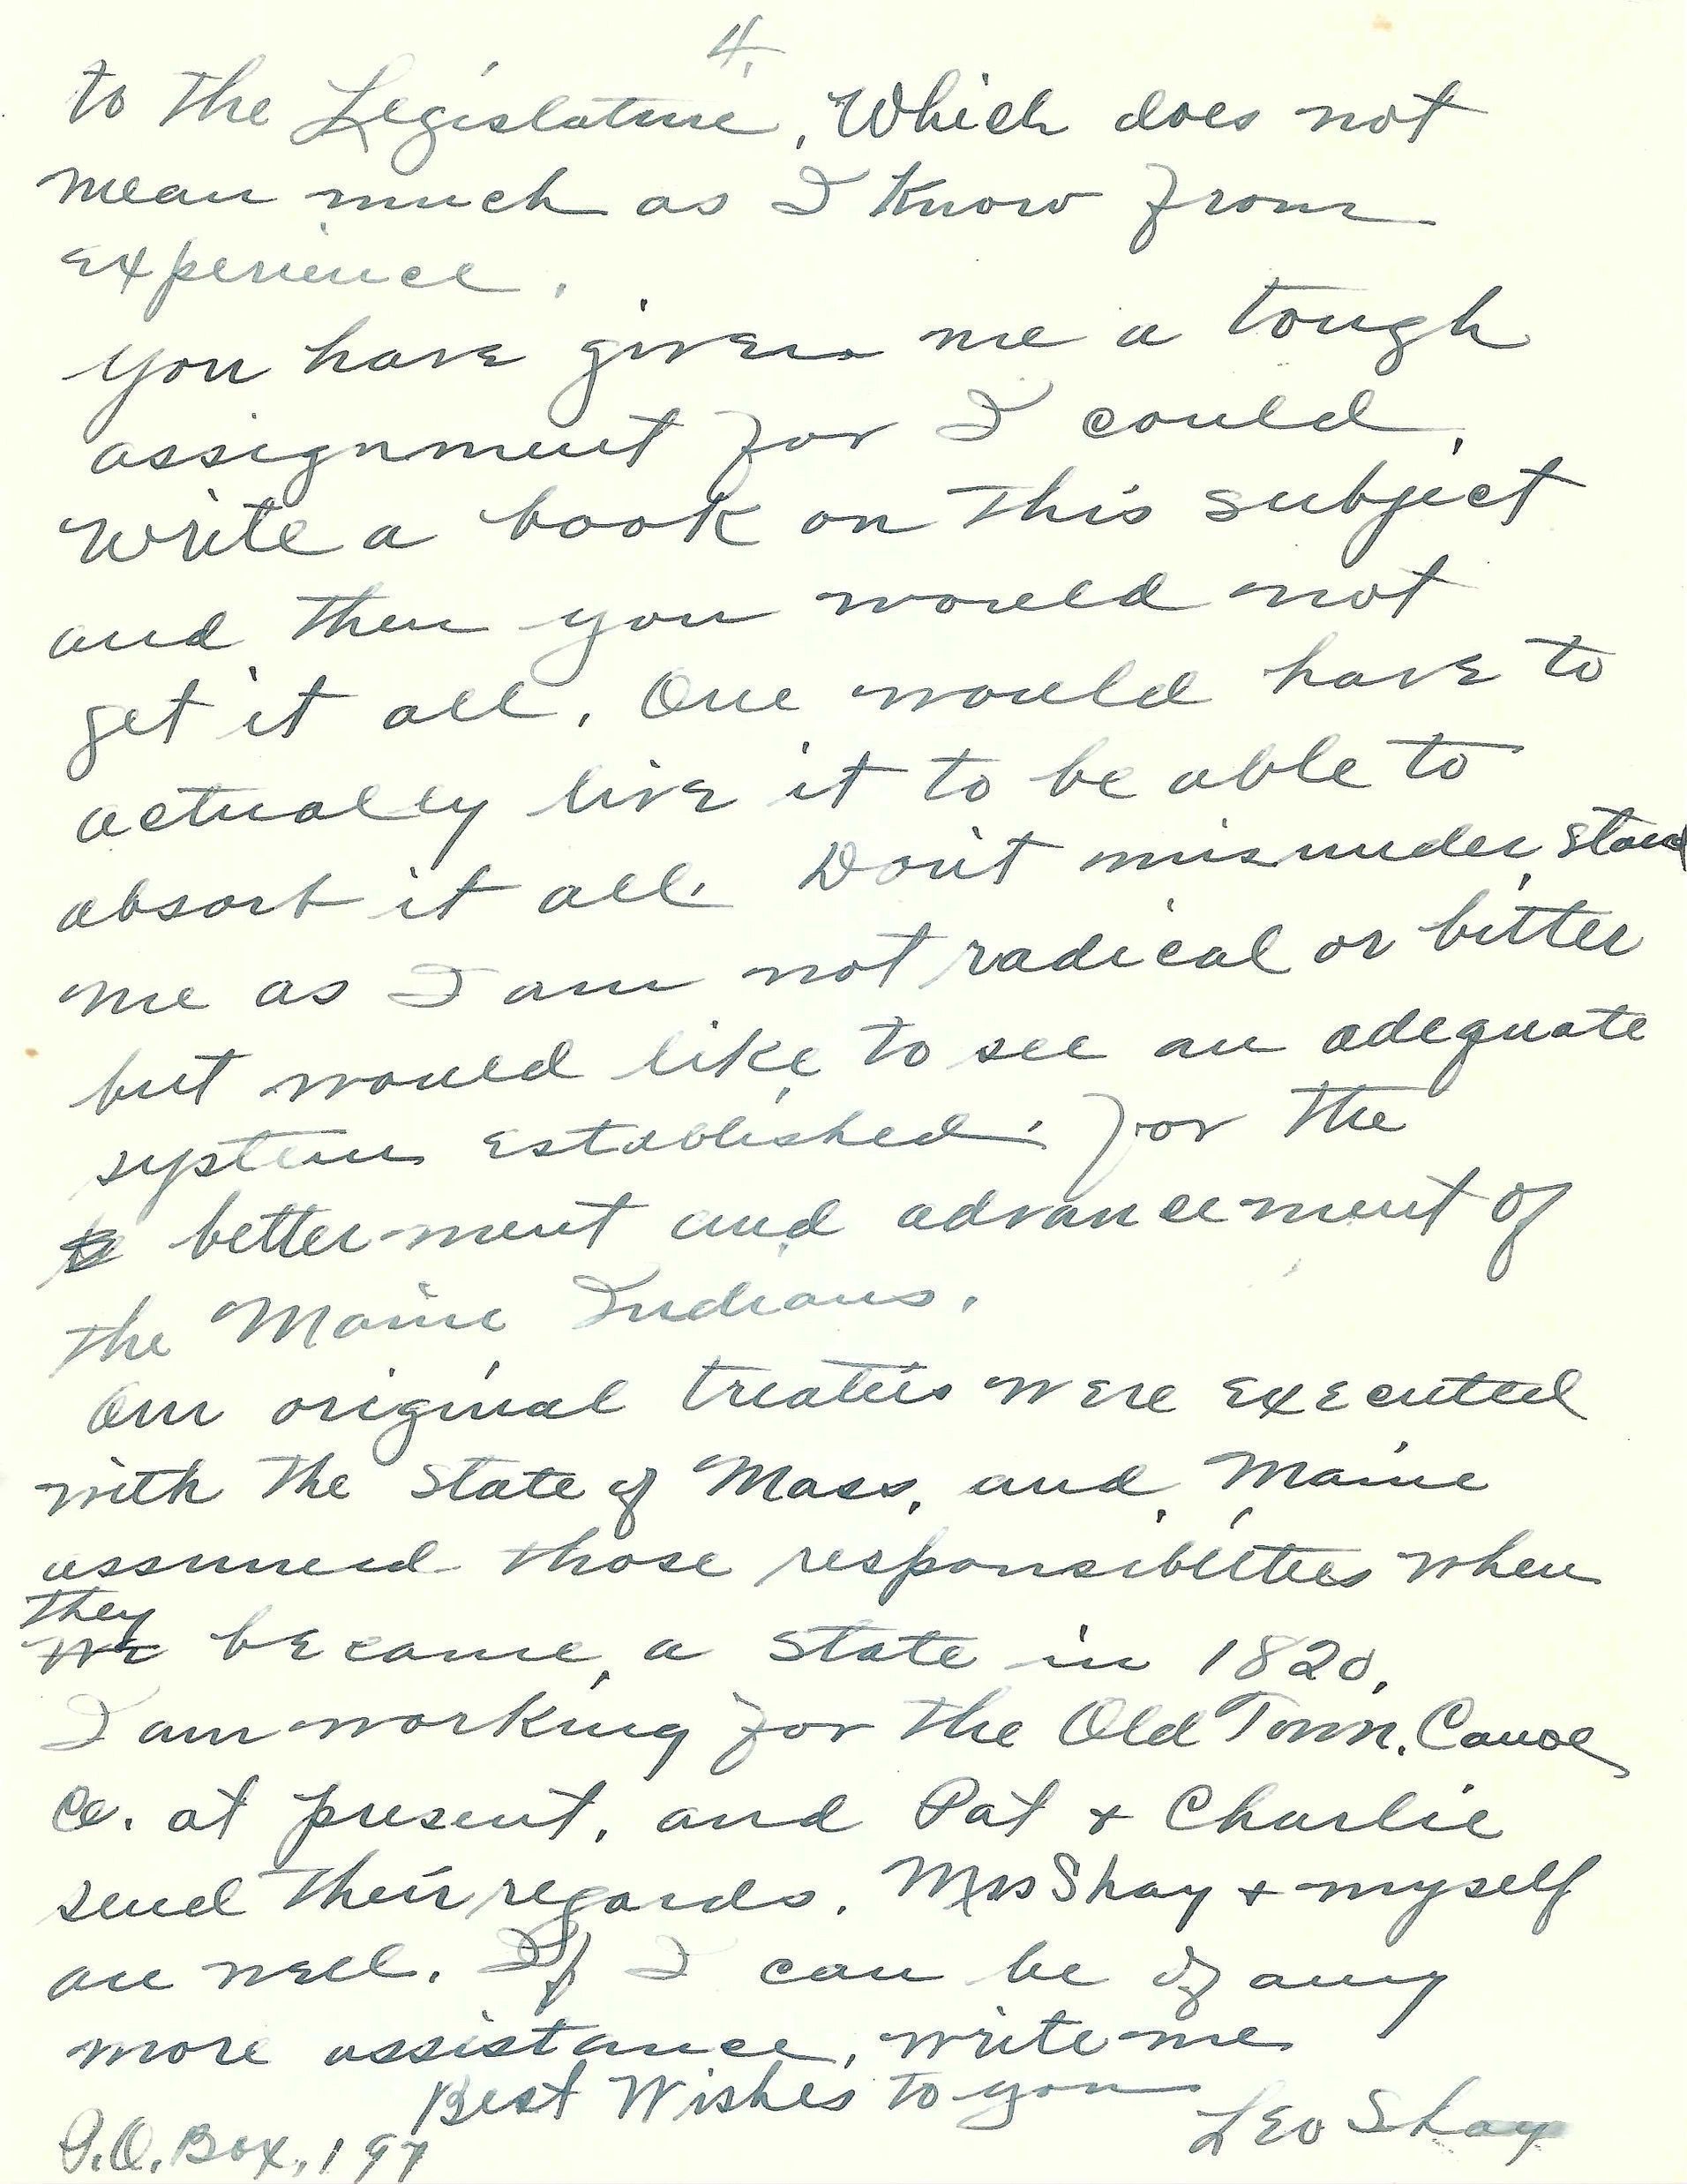 4.
to the Legislature. Which does not
mean much as I know from
experience.
You have given me a tough
assignment for I could
write a book on this subject
and then you would not
get it all. One would have to
actually live it to be able to
absorb it all. Don't misunderstand
me as I am not radical or bitter
but would like to see an adequate
system established for the
betterment and advancement of
the Maine Indians.
Our original treaties were executed
with the State of Mass. and Maine
assumed those responsibilities when
they
we became a State in 1820.
I am working for the Old Town Canoe
Co. at present, and Pat + Charlie
send their regards. Mrs Shay + myself
are well. If I can be of any
more assistance, write me
Best Wishes to you
Leo Shay
P.O. Box, 197